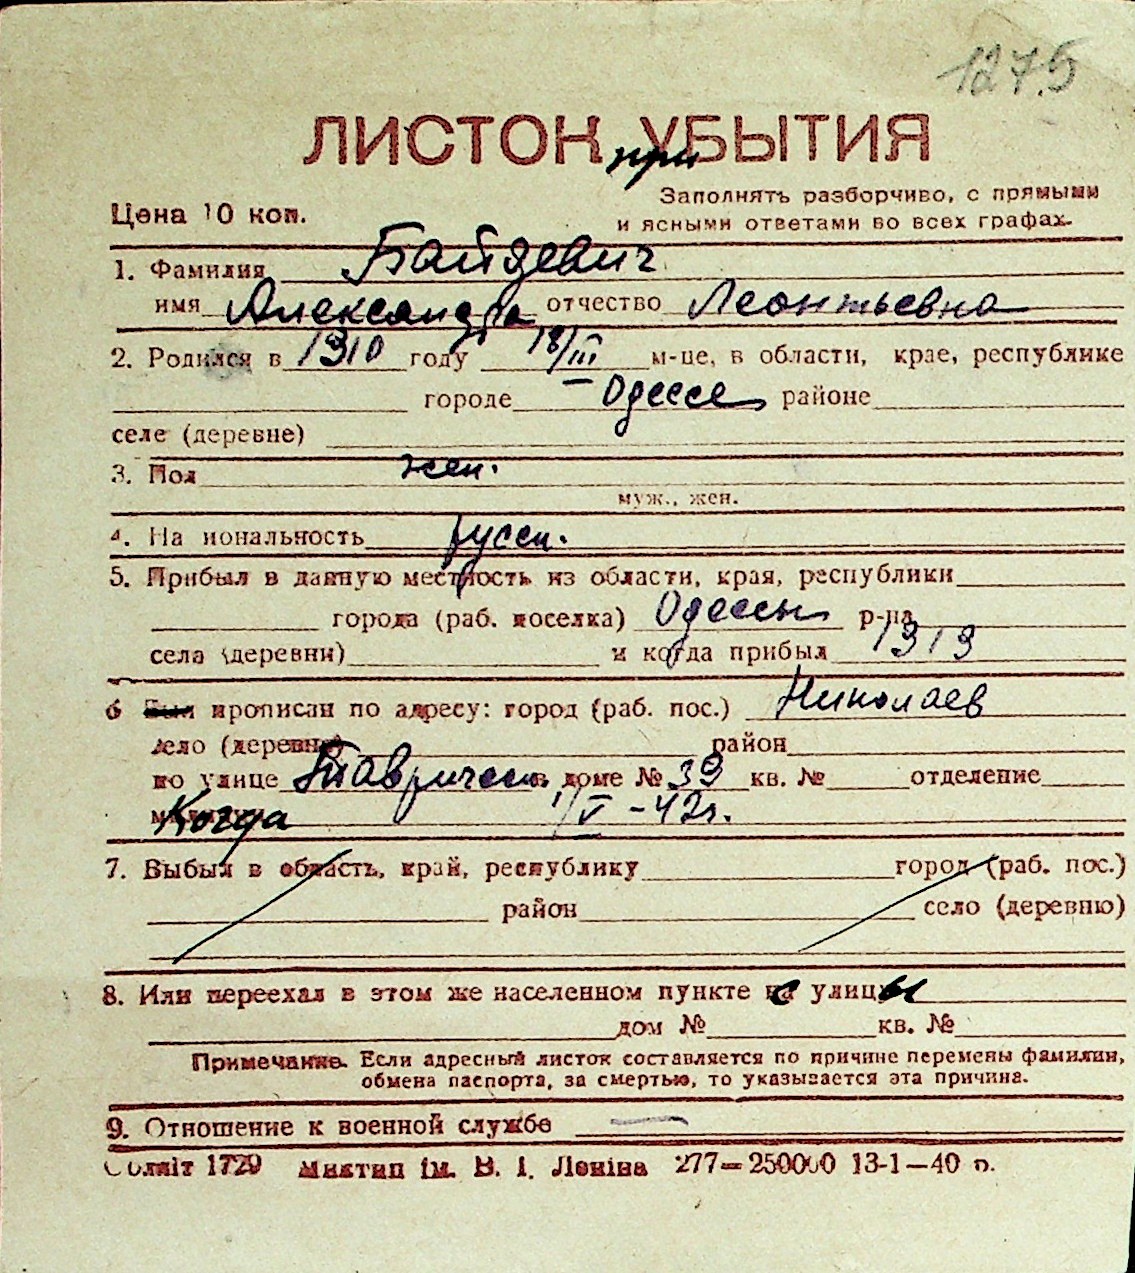 1275
ЛИСТОК УБЫТИЯ
при
Заполнять разборчиво, с прямыми
Цена 10 коп.
и ясными ответами во всех графах.
1. Фамилия Байдевич
имя Александра отчество Леонтьевна
2. Родился в 1910 году 18/III м-це, в области, крае, республике
городе Одессе районе
селе (деревне)
3. Пол жен.
муж., жен.
4. На иональность русск.
5. Прибыл в данную местность из области, края, республики
города (раб. поселка) Одессы р-на
села (деревни) и когда прибыл 1919
6 Был прописан по адресу: город (раб. пос.) Николаев
село (деревня) район
по улице Таврическ. в доме № 39 кв. № отделение
Когда 1/V-42г.
7. Выбыл в область, край, республику город (раб. пос.)
район село (деревню)
8. Или переехал в этом же населенном пункте с улицы
дом № кв. №
Примечание. Если адресный листок составляется по причине перемены фамилии,
обмена паспорта, за смертью, то указывается эта причина.
9. Отношение к военной службе —
Облліт 1729 Миктип ім. В. І. Леніна 277—250000 13-1—40 р.